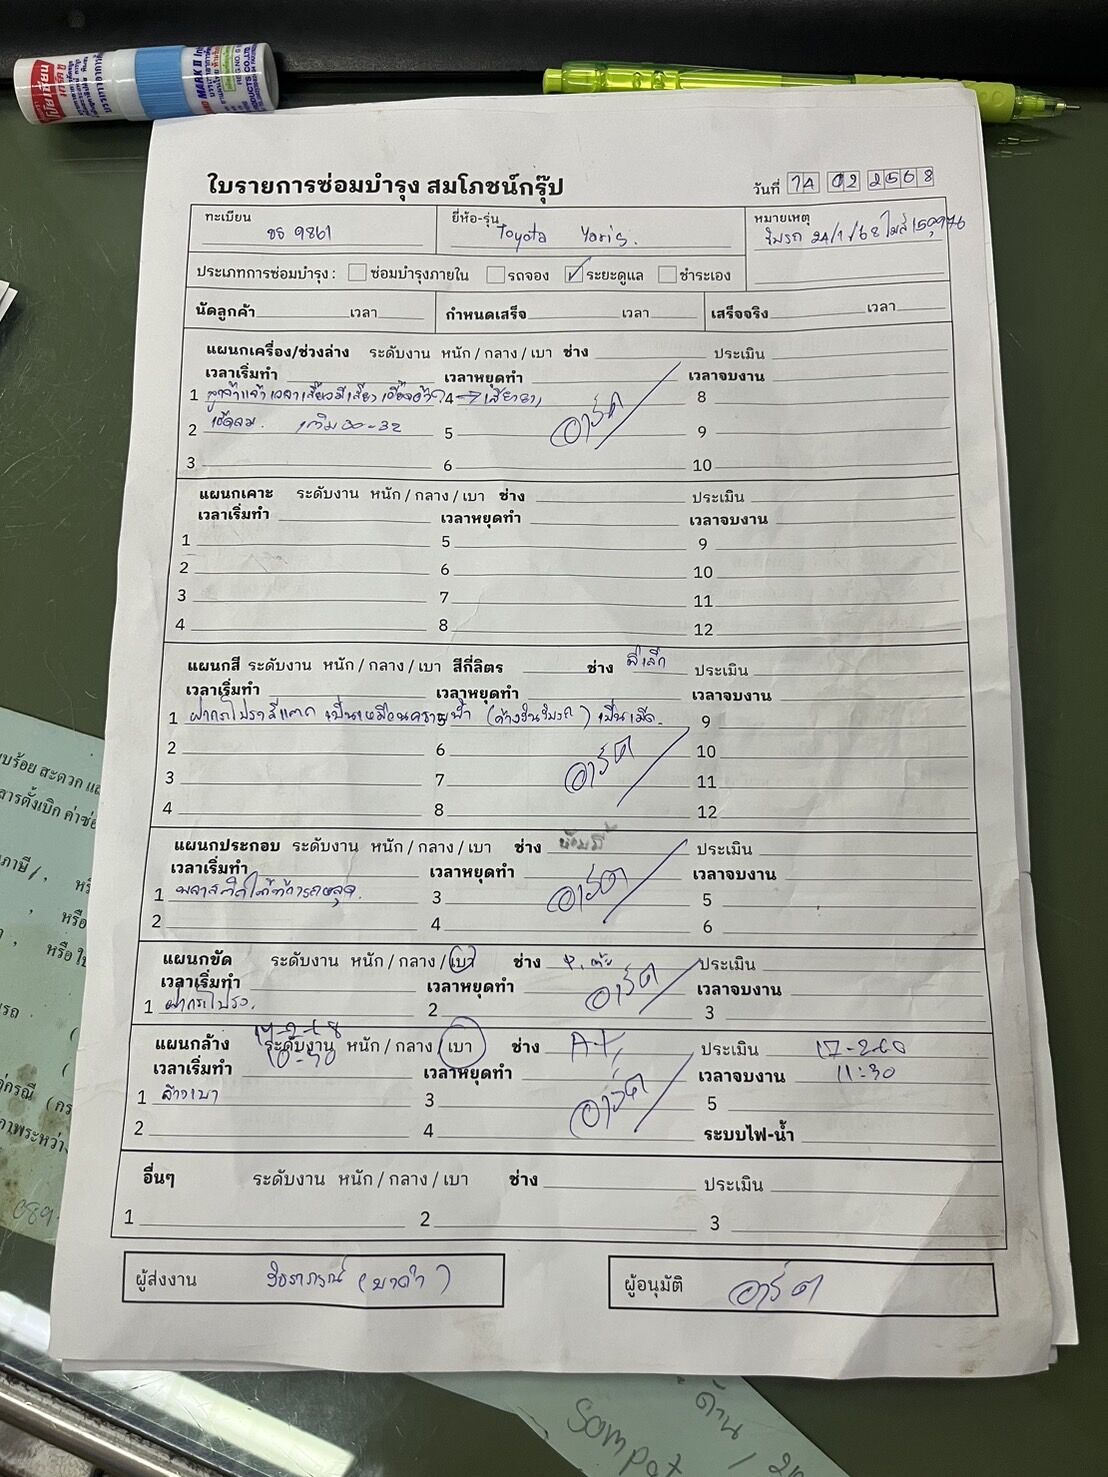 ใบรายการซ่อมบำรุง สมโภชน์กรุ๊ป
วันที่ 14 02 2568
ทะเบียน
ขธ 9861
ยี่ห้อ-รุ่น
Toyota Yaris.
หมายเหตุ
รับรถ 24/1/68 ไมล์ 150,976
ประเภทการซ่อมบำรุง : ซ่อมบำรุงภายใน รถจอง ✓ ระยะดูแล ชำระเอง
นัดลูกค้า เวลา กำหนดเสร็จ เวลา เสร็จจริง เวลา
แผนกเครื่อง/ช่วงล่าง ระดับงาน หนัก / กลาง / เบา ช่าง ประเมิน
เวลาเริ่มทำ เวลาหยุดทำ เวลาจบงาน
1 ลูกค้าแจ้ง เวลาเลี้ยวมีเสียง 4 8
2 เช็คลม. เติม 30-32 5 9
อาร์ต
3 6 10
แผนกเคาะ ระดับงาน หนัก / กลาง / เบา ช่าง ประเมิน
เวลาเริ่มทำ เวลาหยุดทำ เวลาจบงาน
1 5 9
2 6 10
3 7 11
4 8 12
แผนกสี ระดับงาน หนัก / กลาง / เบา สีกี่ลิตร ช่าง พี่เล็ก ประเมิน
เวลาเริ่มทำ เวลาหยุดทำ เวลาจบงาน
1 ฝากระโปรงสีแตก เป็นเหมือนคราบน้ำ (ค้างวันรับรถ) เป็นเม็ด. 9
2 6 10
อาร์ต
3 7 11
4 8 12
แผนกประกอบ ระดับงาน หนัก / กลาง / เบา ช่าง ประเมิน
เวลาเริ่มทำ เวลาหยุดทำ เวลาจบงาน
1 พลาสติกใต้ท้องรถหลุด. 3 อาร์ต 5
2 4 6
แผนกขัด ระดับงาน หนัก / กลาง / เบา ช่าง ประเมิน
เวลาเริ่มทำ เวลาหยุดทำ เวลาจบงาน
1 ฝากระโปรง. 2 อาร์ต 3
17-2-68
แผนกล้าง ระดับงาน หนัก / กลาง / เบา ช่าง ประเมิน 17-2-68
10-30
เวลาเริ่มทำ เวลาหยุดทำ เวลาจบงาน 11:30
1 ล้างเบา 3 อาร์ต 5
2 4 ระบบไฟ-น้ำ
อื่นๆ ระดับงาน หนัก / กลาง / เบา ช่าง ประเมิน
1 2 3
ผู้ส่งงาน
ผู้อนุมัติ อาร์ต
Sompot